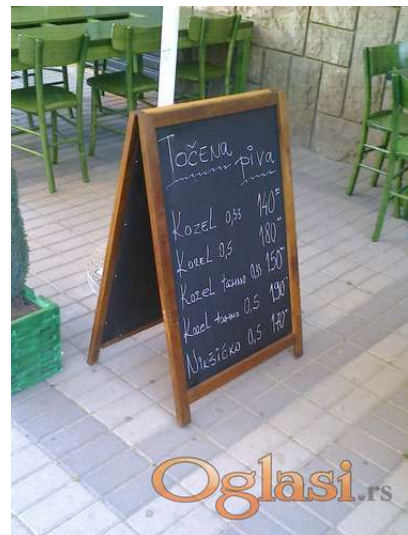 TOČENA
PIVA
KOZEL 0,33 140=
KOZEL 0,5 180=
KOZEL tamno 0,33 150=
KOZEL tamno 0,5 190=
NIKŠIĆKO 0,5 170=
Oglasi.rs